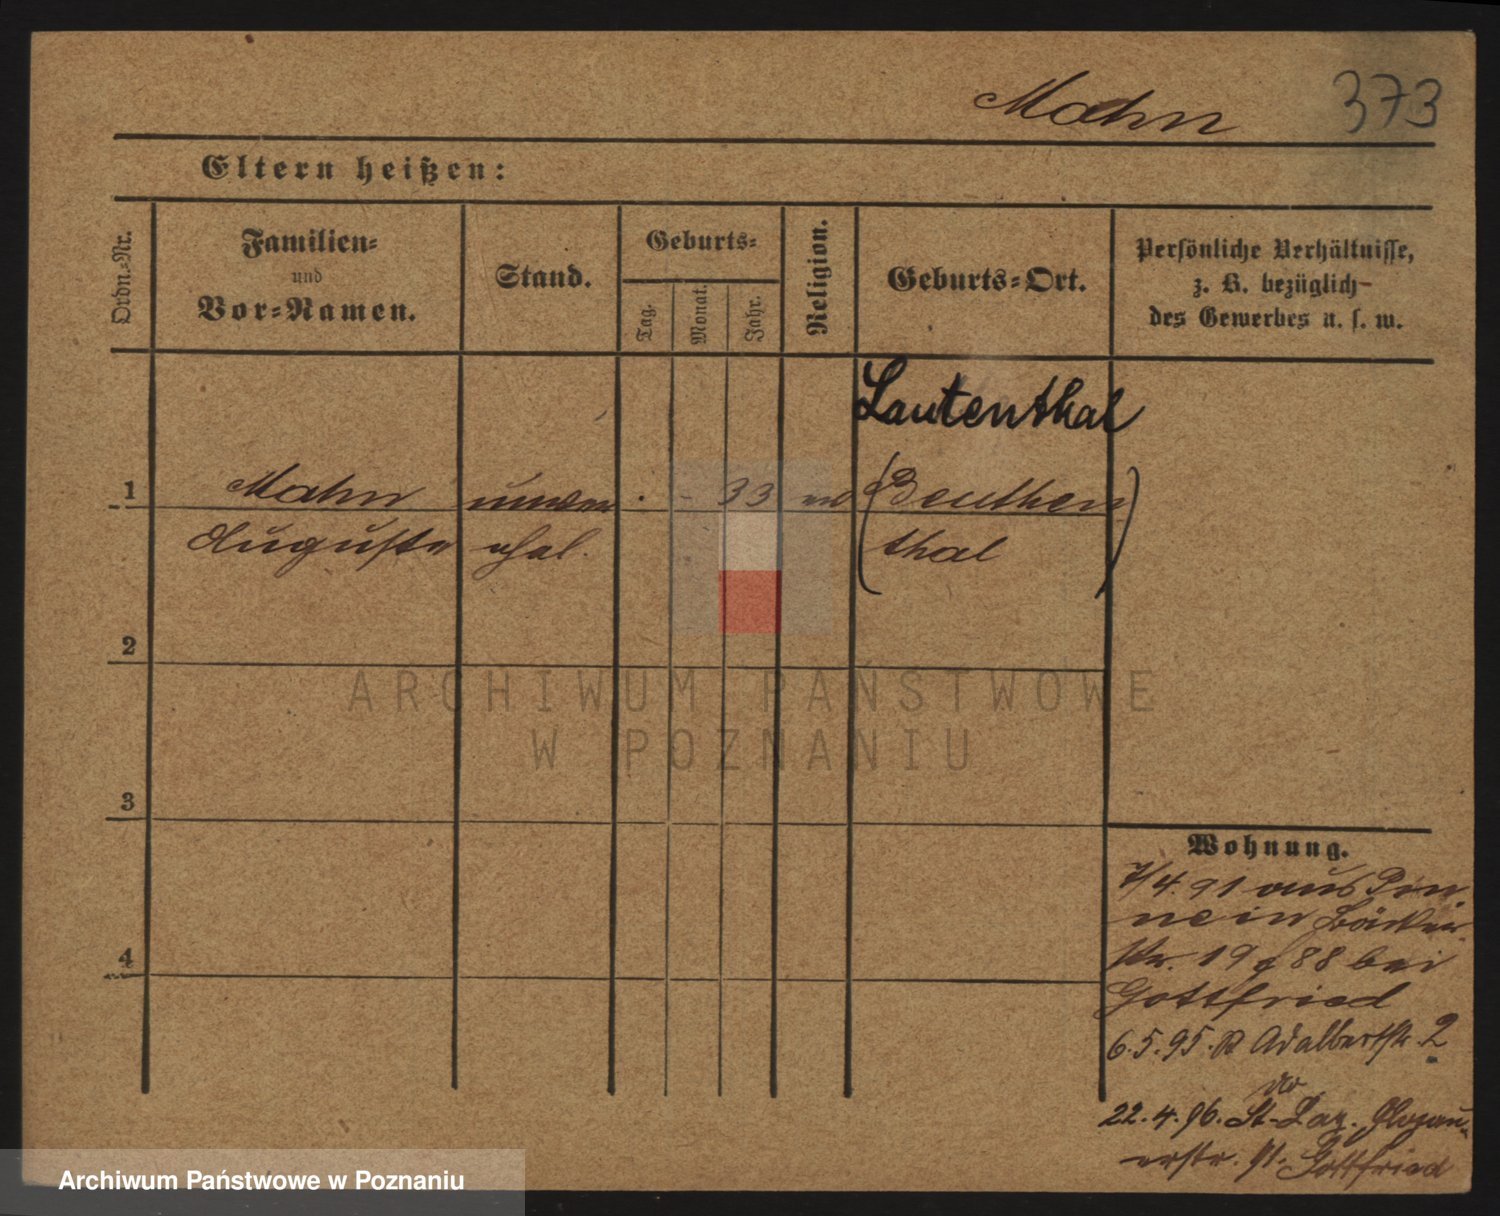 Mahn 373
Eltern heißen:
Ordn.-Nr.
Familien-
und
Vor-Namen.
Stand.
Geburts-
Tag.
Monat.
Jahr.
Religion.
Geburts-Ort.
Persönliche Verhältnisse,
z. B. bezüglich
des Gewerbes u. s. w.
Lautenthal
1 Mahn unver - 33 ev (Beuthen
Auguste ehel. thal)
2
3
4
ARCHIWUM PAŃSTWOWE
W POZNANIU
Wohnung.
7/4.91 aus Pin
ne in Bäcker
str. 19 88 bei
Gottfried
6.5.95. R Adalbertstr. 2
22.4.96. St. Laz. Glogau-
erstr. 91. Gottfried
Archiwum Państwowe w Poznaniu